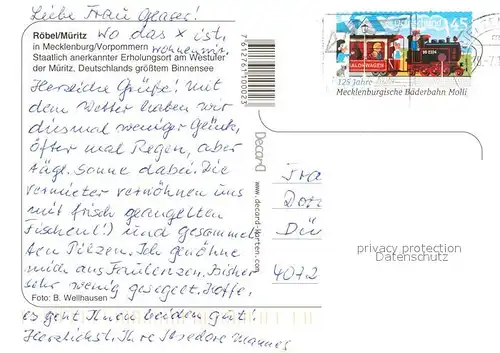 Liebe Frau
Röbel/Müritz wo das x ist,
in Mecklenburg/Vorpommern wohnen wir.
Staatlich anerkannter Erholungsort am Westufer
der Müritz, Deutschlands größtem Binnensee
Herzliche Grüße! Mit
dem Wetter haben wir
diesmal weniger Glück,
öfter mal Regen, aber
tägl. Sonne dabei. Die
Vermieter verwöhnen uns
mit frisch geangelten
Fischen(!) und gesammel-
ten Pilzen. Ich genöhne
mich ans Faulenzen. Bisher
sehr wenig gesegelt. Hoffe,
Foto: B. Wellhausen
es geht Ihnen beiden gut!
Herzlichst, Ihre Isedore
7612761100023
Decard
www.decard-karten.com
45
SALONWAGEN
125 Jahre
Mecklenburgische Bäderbahn Molli
Fra
Dor
Dü
4072
privacy protection
Datenschutz